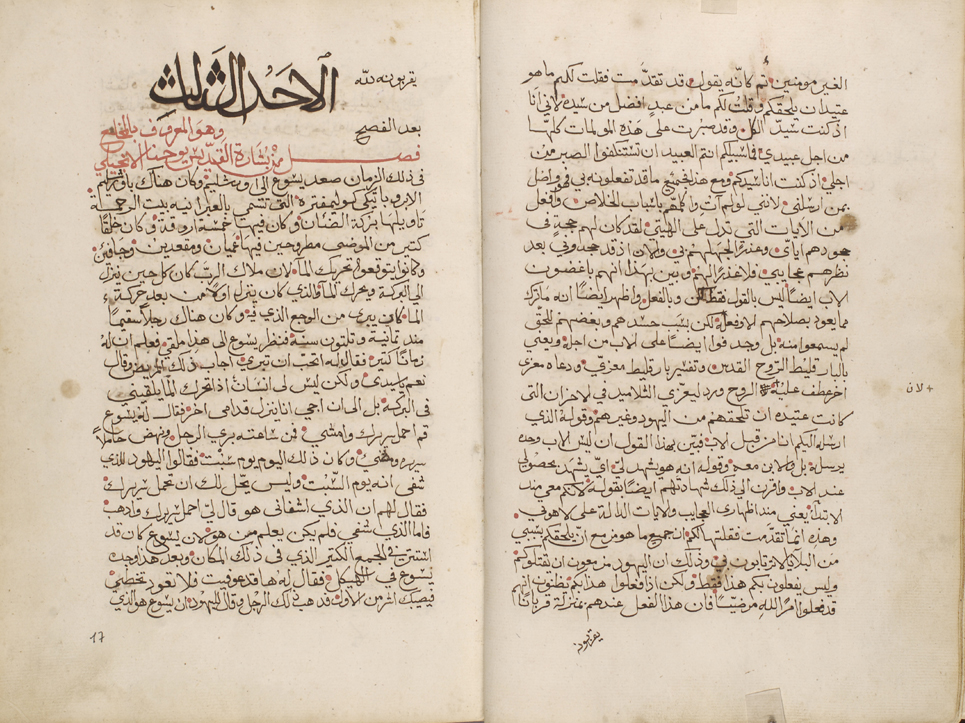 الغير مومنين ثم كانه يقول قد تقدمت فقلت لكم ما هو
عتيدان يلحقكم وقلت لكم ما من عبد افضل من سيده لاني انا
اذ كنت سيد الكل وقد صبرت على هذه المولمات كلها
من اجل عبيدي فما سبيلكم انتم العبيد ان تستنكفوا الصبر من
اجلي اذ كنت انا سيدكم ومع هذا فجميع ما قد تفعلونه بي فواصل
بمن ارسلني لانني لو لم آت واكلمهم باسباب الخلاص وافعل
من الايات التي تدل على الهيتي لقد كان لهم حجة في
جحودهم اياي وعذرا لجهلهم بي والان اذ قد جحدوني بعد
نظرهم عجايبي فلا عذر لهم وبين بهذا انهم باغضون
الاب ايضا ليس بالقول فقط لكن وبالفعل واظهر ايضا انه ما ترك
مما يعود بصلاحهم الا وفعله لكن بسبب حسدهم وبغضهم للحق
لم يسمعوا منه بل وجدفوا ايضا على الاب من اجله ويعني
بالبارقليط الروح القدس وتفسير بارقليط معزي ودعاه معزي
الروح ورد ليعزي التلاميذ في الاحزان التي
+ لان
كانت عتيدة ان تلحقهم من اليهود وغيرهم وقوله الذي
ارسله اليكم انا من قبل الاب فبين بهذا القول ان ليس الاب وحده
يرسله بل والابن معه وقوله انه هو يشهد لي اي يشهد بحصولي
عند الاب واقرن الى ذلك شهادتهم ايضا بقوله لانكم معي منذ
الابتدا يعني منذ اظهاري العجايب والايات الدالة على لاهوتي
وهذه انما تقدمت فقلتها لكم ان جميع ما هو مزمع ان يلحقكم بسببي
من البلايا لا ترتابون في وذلك ان اليهود مزمعون ان يقتلوكم
وليس يفعلون بكم هذا فقط ولكن اذا فعلوا هذا بكم يظنون انهم
قد فعلوا امرا لله مرضيا فان هذا الفعل عندهم بمنزلة قربانا
يقربونه
يقربونه لله
الاحد الثالث
بعد الفصح
وهو المعروف بالمخلع
فصل من بشارة القديس يوحنا الانجيلي
في ذلك الزمان صعد يسوع الى اورشليم وكان هناك باورشليم
الابروباتيكي كوليمفثره التي تسمى بالعبرانية بيت الرحمة
تاويلها بركة الضان وكان فيها خمسة اروقة وكان خلقا
كثير من المرضى مطروحين فيها عميان ومقعدين وجافين
وكانوا يتوقعوا تحريك الما لان ملاك الرب كان كل حين ينزل
الى البركة ويحرك الما والذي كان ينزل اولا من بعد حركة
الما كان يبرى من الوجع الذي فيه وكان هناك رجلا سقيما
منذ ثمانية وثلثون سنة فنظر يسوع الى هذا ملقى فعلم ان له
زمانا كثير فقال له اتحب ان تبرى اجاب ذلك المريض وقال
نعم يا سيدي ولكن ليس لي انسان اذا تحرك الما يلقيني
في البركة بل الى ان اجي انا ينزل قدامي اخر فقال له يسوع
قم احمل سريرك وامشي فمن ساعته بري الرجل ونهض حاملا
سريره ومشي وكان ذلك اليوم يوم سبت فقالوا اليهود للذي
شفي انه يوم السبت وليس يحل لك ان تحمل سريرك
فقال لهم ان الذي اشفاني هو قال لي احمل سريرك واذهب
فاما الذي شفي فلم يكن يعلم من هو لان يسوع كان قد
استتر في الجمع الكثير الذي في ذلك المكان وبعد هذا وجده
يسوع في الهيكل فقال له ها قد عوفيت فلا تعود تخطي
فيصيبك اشر من الاول فذهب ذلك الرجل وقال لليهود ان يسوع هو الذي
17